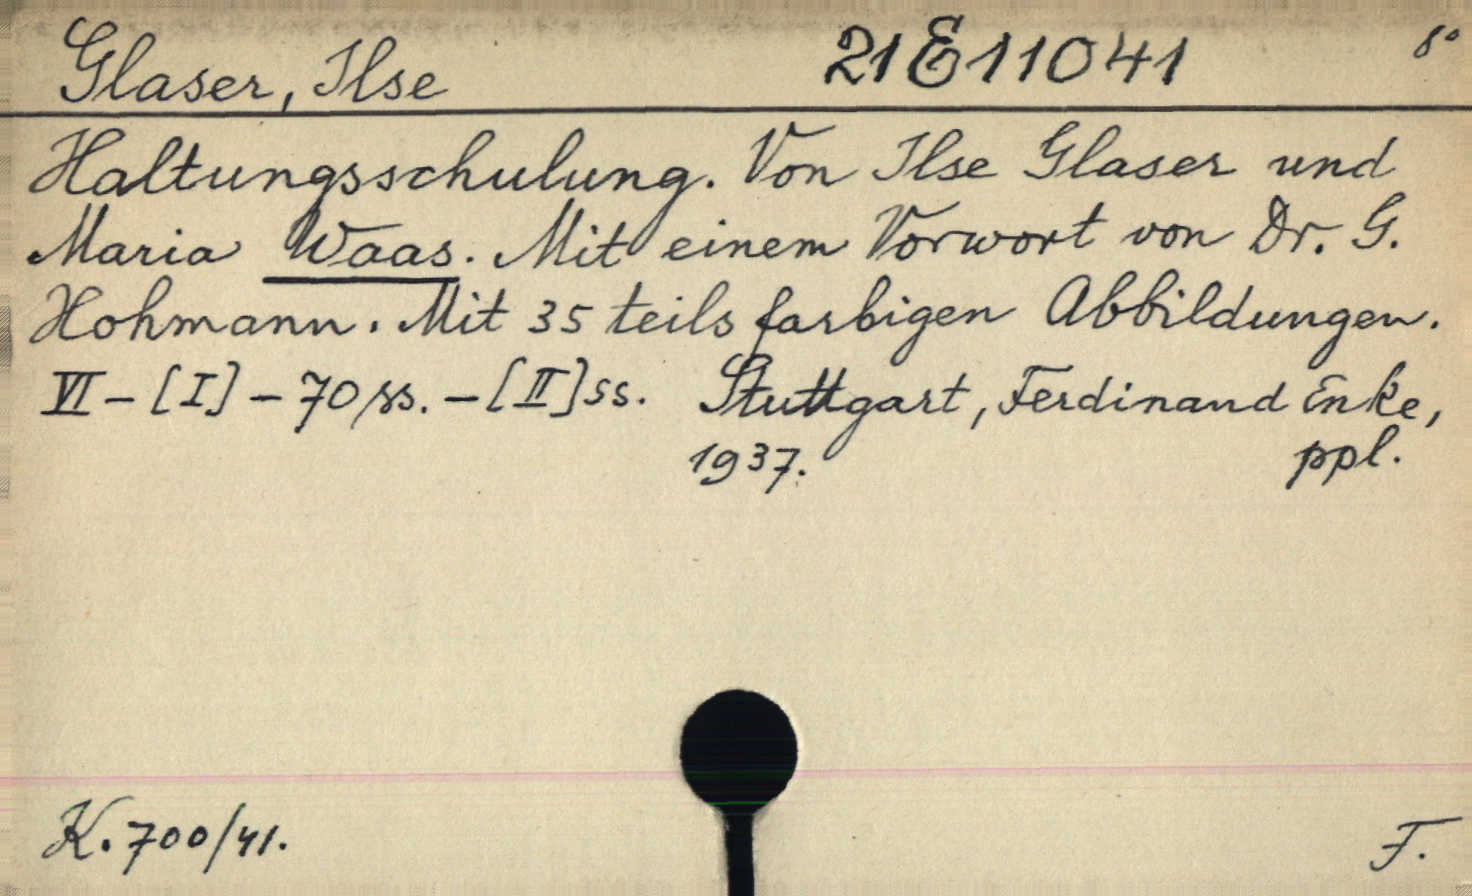 Glaser, Ilse 21E11041 8°
Haltungsschulung. Von Ilse Glaser und
Maria Waas. Mit einem Vorwort von Dr. G.
Hohmann. Mit 35 teils farbigen Abbildungen.
VI – [I] – 70 ss. – [II] ss. Stuttgart, Ferdinand Enke,
1937. ppl.
K. 700/41. F.